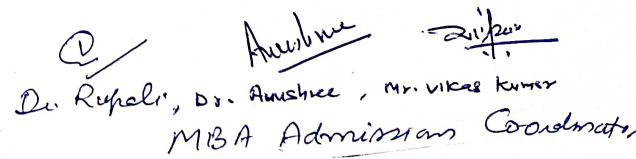 Anushree
Dr. Rupali, Dr. Anushree, Mr. Vikas Kumar
MBA Admissions Coordinator